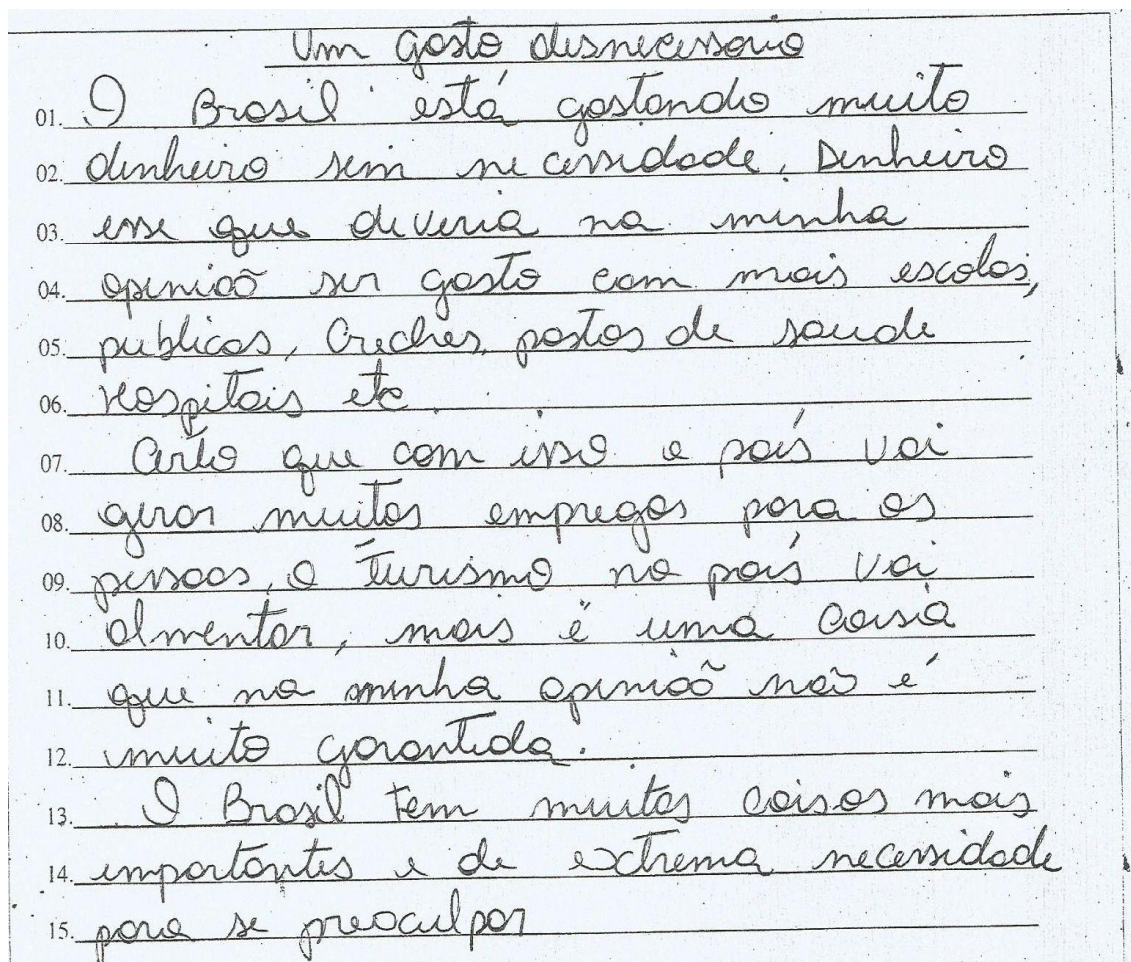 Um gasto desnecessario
01. O Brasil está gastando muito
02. dinheiro sem necessidade. Dinheiro
03. esse que deveria na minha
04. opinião ser gasto com mais escolas,
05. publicas, Creches, postos de saude
06. Hospitais etc.
07. Certo que com isso o país vai
08. gerar muitos empregos para as
09. pessoas, o turismo no país vai
10. almentar, mais é uma coisa
11. que na minha opinião não é
12. muito garantida.
13. O Brasil tem muitas coisas mais
14. importantes e de extrema necessidade
15. para se preoculpar